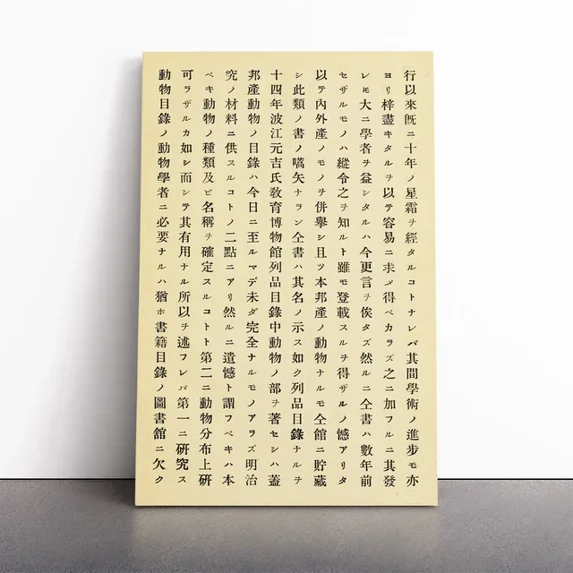 動物目錄ノ動物學者ニ必要ナルハ猶ホ書籍目錄ノ圖書舘ニ欠ク
可ラザルカ如シ而シテ其有用ナル所以ヲ述フレバ第一ニ硏究ス
ベキ動物ノ種類及ビ名稱ヲ確定スルコトト第二ニ動物分布上硏
究ノ材料ニ供スルコトノ二點ニアリ然ルニ遺憾ト謂フベキハ本
邦產動物ノ目錄ハ今日ニ至ルマデ未ダ完全ナルモノアラズ明治
十四年波江元吉氏敎育博物館列品目錄中動物ノ部ヲ著セシハ蓋
シ此類ノ書ノ嚆矢ナラン仝書ハ其名ノ示ス如ク列品目錄ナルヲ
以テ內外產ノモノヲ併擧シ且ツ本邦產ノ動物ナルモ仝館ニ貯藏
セザルモノハ縱令之ヲ知ルト雖モ登載スルヲ得ザルノ憾アリタ
レ𪜈大ニ學者ヲ益シタルハ今更言ヲ俟タズ然ルニ仝書ハ數年前
ヨリ梓盡キタルヲ以テ容易ニ求メ得ベカラズ之ニ加フルニ其發
行以來旣ニ十年ノ星霜ヲ經タルコトナレバ其間學術ノ進步モ亦